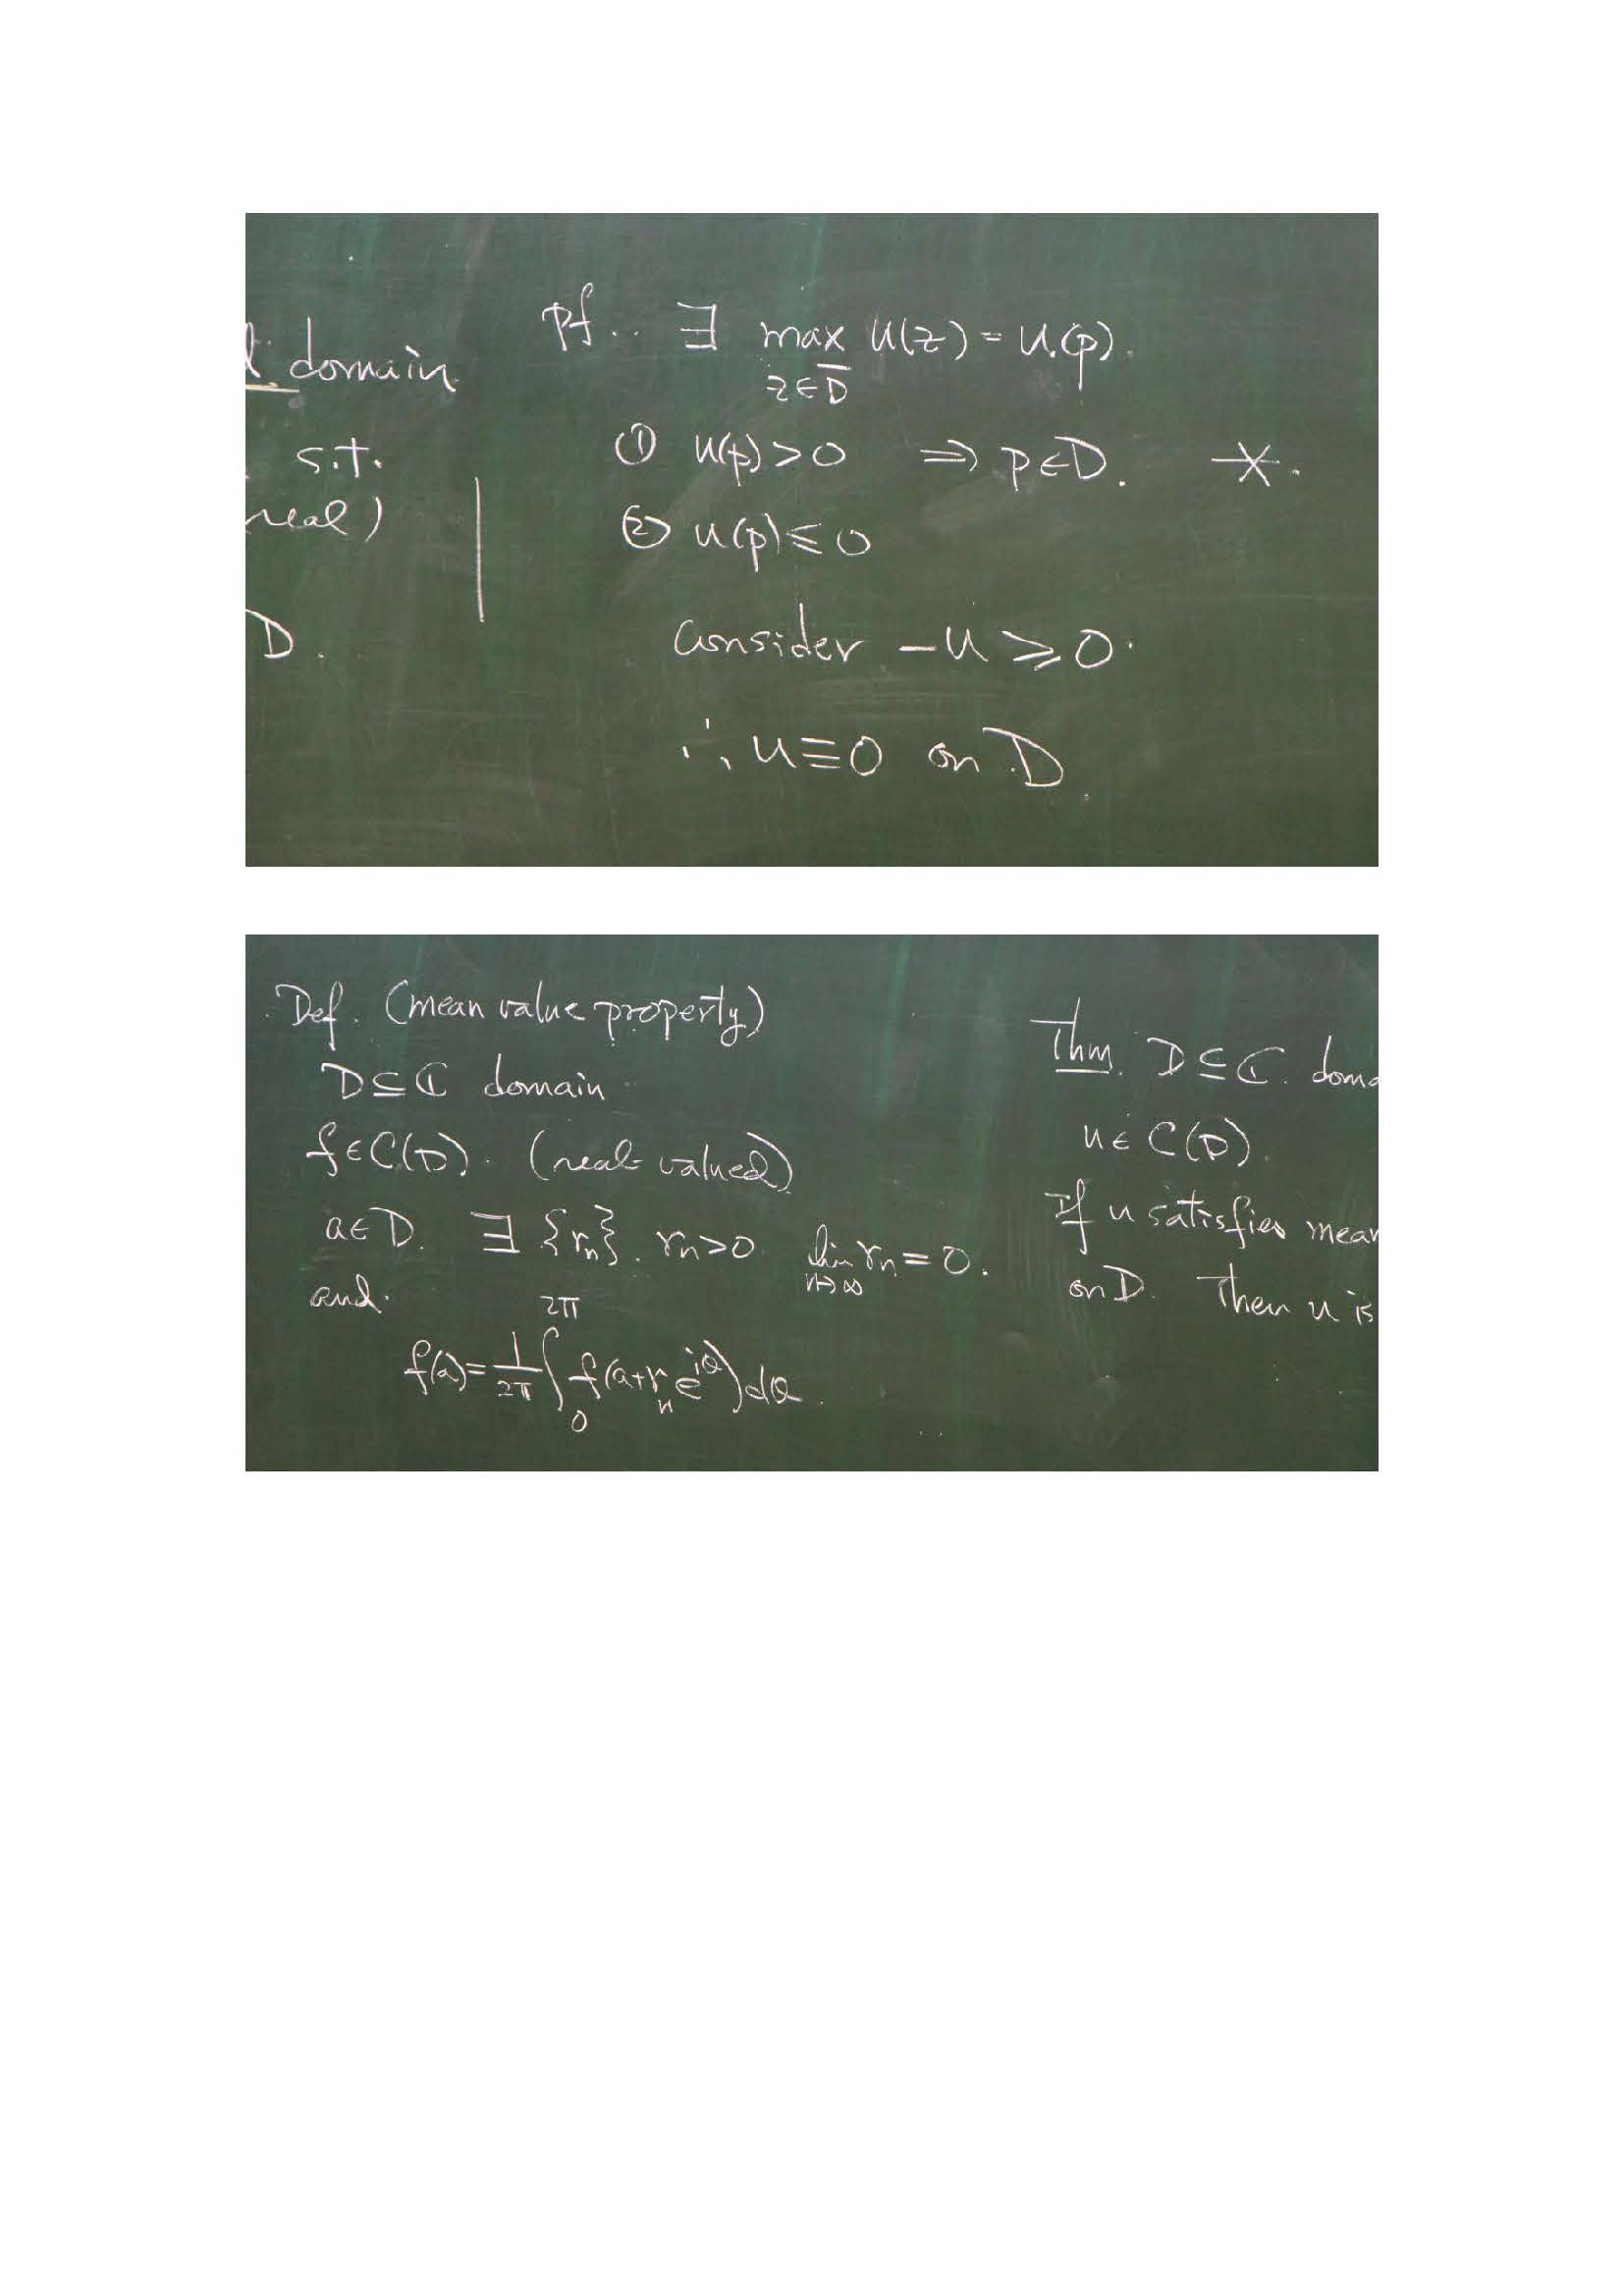 d. domain
pf.. ∃ max u(z) = u(p).
z∈D̅
s.t.
① u(p)>0 ⇒ p∈D. ※.
real)
② u(p)≤0
D.
Consider -u ≥ 0.
∴ u≡0 on D.
Def. (mean value property)
D⊆ℂ domain
f∈C(D). (real-valued)
a∈D. ∃ {rₙ}. rₙ>0 lim rₙ = 0.
n→∞
and.
f(a)=1/2π ∫₀^2π f(a+rₙe^iθ)dθ.
Thm. D⊆ℂ. doma
u∈C(D).
If u satisfies mean
on D. Then u is